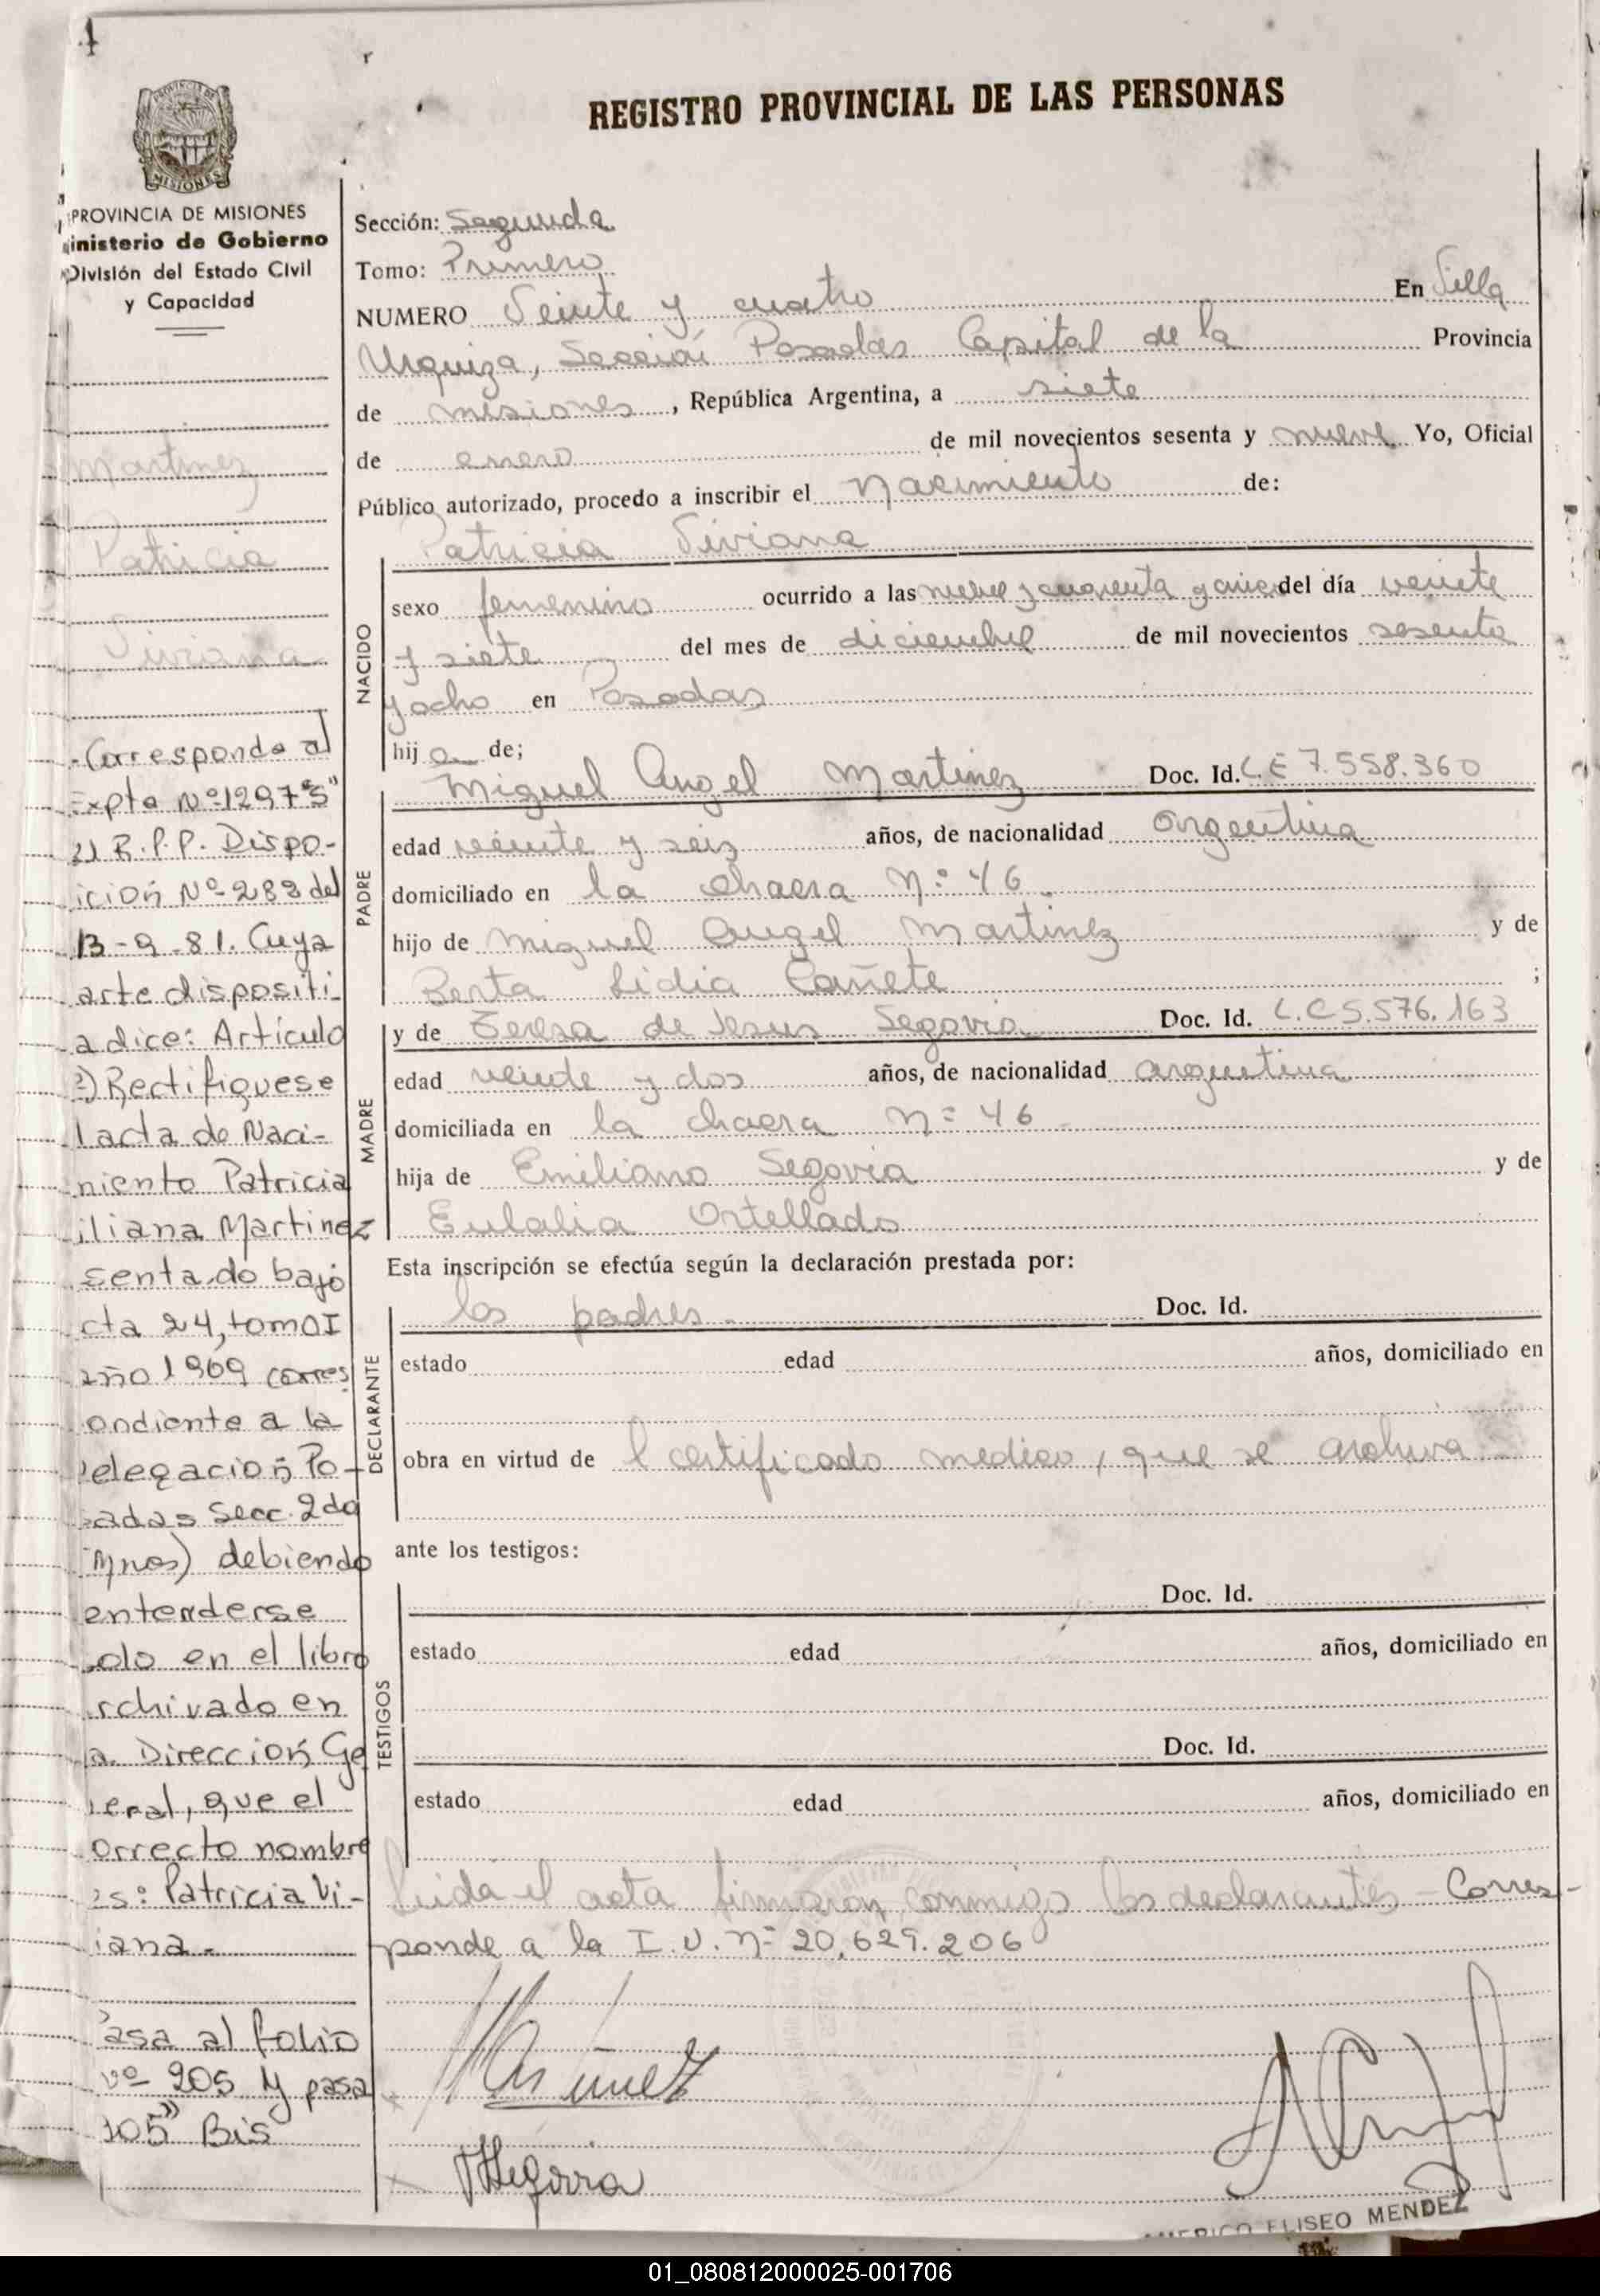 1
REGISTRO PROVINCIAL DE LAS PERSONAS
MISIONES
PROVINCIA DE MISIONES
inisterio de Gobierno
División del Estado Civil
y Capacidad
Martinez
Patricia
Viviana
-Corresponde al
Expte Nº-1297"S"
81 R.P.P. Dispo-
ición Nº-283 del
13-9-81. Cuya
arte dispositi-
a dice: Artículo
Rectifiquese
l acta de Naci-
miento Patricia
iliana Martinez
senta.do bajo
cta 24, tomo I
año 1969 corres
ondiente a la
elegación Po-
sadas Secc. 2da
(Mnes) debiendo
entenderse
solo en el libro
rchivado en
la Dirección Ge
neral, que el
orrecto nombre
es: Patricia Vi-
iana.-
Pasa al folio
Nº 205 y pasa
Bis
Sección: Segunda
Tomo: Primero
NUMERO Veinte y cuatro En Villa
Urquiza, Sección Posadas Capital de la Provincia
de misiones, República Argentina, a siete
de enero de mil novecientos sesenta y nueve Yo, Oficial
Público autorizado, procedo a inscribir el nacimiento de:
Patricia Viviana
NACIDO
sexo femenino ocurrido a las nueve y cuarenta y cinco del día veinte
y siete del mes de diciembre de mil novecientos sesenta
y ocho en Posadas
hija de;
Miguel Angel Martinez Doc. Id. L.E 7.558.360
PADRE
edad veinte y seis años, de nacionalidad argentina
domiciliado en la chacra Nº 46.
hijo de Miguel Angel Martinez y de
Berta Lidia Cañete ;
y de Teresa de Jesus Segovia Doc. Id. L.C 5.576.163
MADRE
edad veinte y dos años, de nacionalidad argentina
domiciliada en la chacra Nº 46
hija de Emiliano Segovia y de
Eulalia Ortellado
Esta inscripción se efectúa según la declaración prestada por:
los padres. Doc. Id.
DECLARANTE
estado edad años, domiciliado en
obra en virtud de l certificado medico, que se archiva
ante los testigos:
Doc. Id.
TESTIGOS
estado edad años, domiciliado en
Doc. Id.
estado edad años, domiciliado en
Leida el acta firmaron conmigo los declarantes - Corres-
ponde a la I.U. Nº 20.629.206
AMERICO ELISEO MENDEZ
01_080812000025-001706